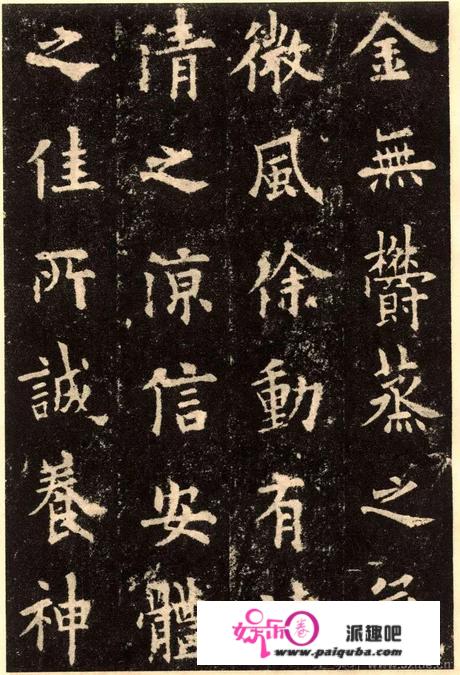 金無鬱蒸之
微風徐動有
清之涼信安體
之佳所誠養神
娱乐卷 派趣吧
www.paiquba.com